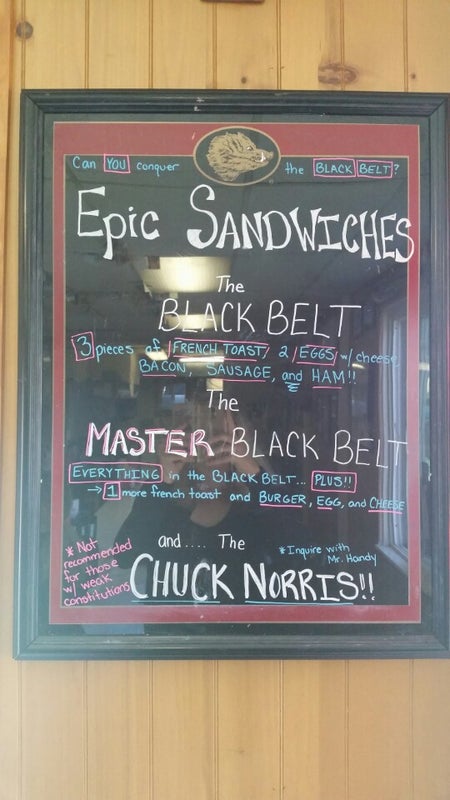 Can YOU conquer the BLACK BELT?
Epic SANDWICHES
The
BLACK BELT
3 pieces of FRENCH TOAST 2 EGGS w/ cheese,
BACON, SAUSAGE, and HAM!!
The
MASTER BLACK BELT
EVERYTHING in the BLACK BELT... PLUS!!
→ 1 more french toast and BURGER, EGG, and CHEESE
and.... The
CHUCK NORRIS!!
* Inquire with
Mr. Handy
* Not
recommended
for those
w/ weak
constitutions